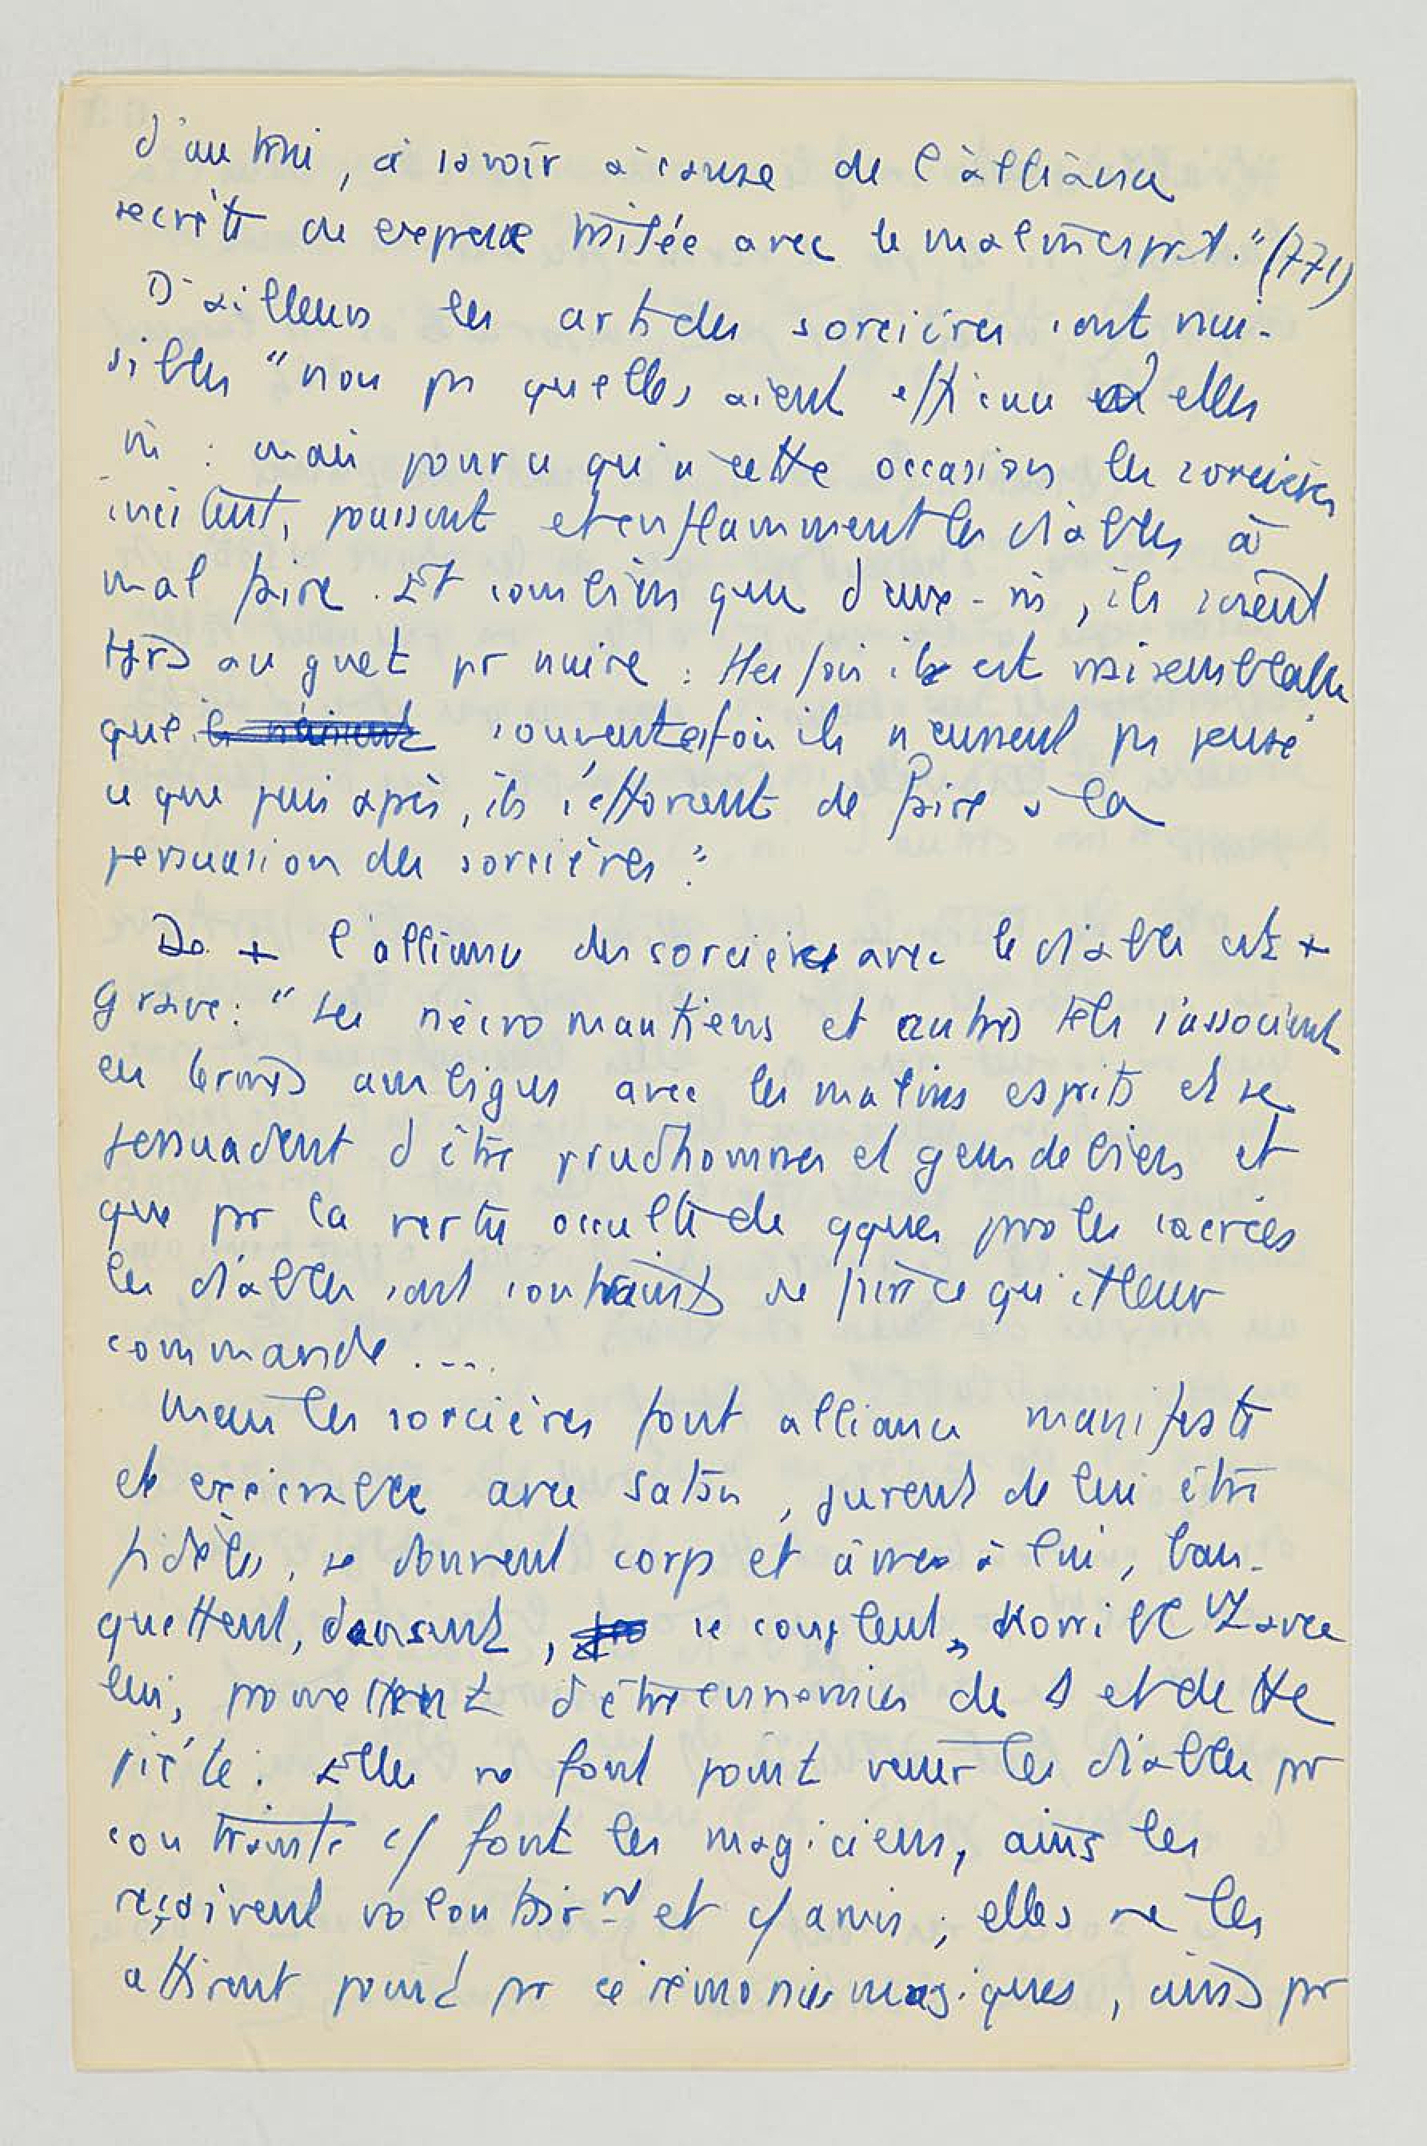 d'autrui, à savoir à cause de l'alliance
secrète ou expresse traitée avec le malin esprit." (771)
D'ailleurs les arts des sorcières sont nui-
sibles "non pas qu'elles aient efficace d'elles
m̂ : mais pour ce qu'à cette occasion les sorcières
incitent, poussent et enflamment les diables à
mal faire. Et combien que d'eux-m̂, ils soient
tjrs au guet pr nuire : ttes fois il est vraisemblable
que souventes fois ils n'eussent pas pensé
ce que puis après, ils s'efforcent de faire à la
persuasion des sorcières"
De + l'alliance des sorcières avec le diables est +
grave : "Les nécromantiens et autres tels s'associent
en termes ambigus avec les malins esprits et se
persuadent d'être prudhommes et gens de bien et
que par la vertu occulte de qques proles sacrées
les diables sont contraints de faire ce qu'il leur
commande ....
Mais les sorcières font alliance manifeste
et exécrable avec Satan, jurent de lui être
fidèles, se donnent corps et âmes à lui, ban-
quettent, dansent, se couplent horriblemt avec
lui, promettent d'être ennemies de et de tte
piété. Elles ne font point venir les diables par
contrainte c/ font les magiciens, ains les
reçoivent volontairemt et c/ amis ; elles ne les
attirent point par cérémonies magiques, ains par